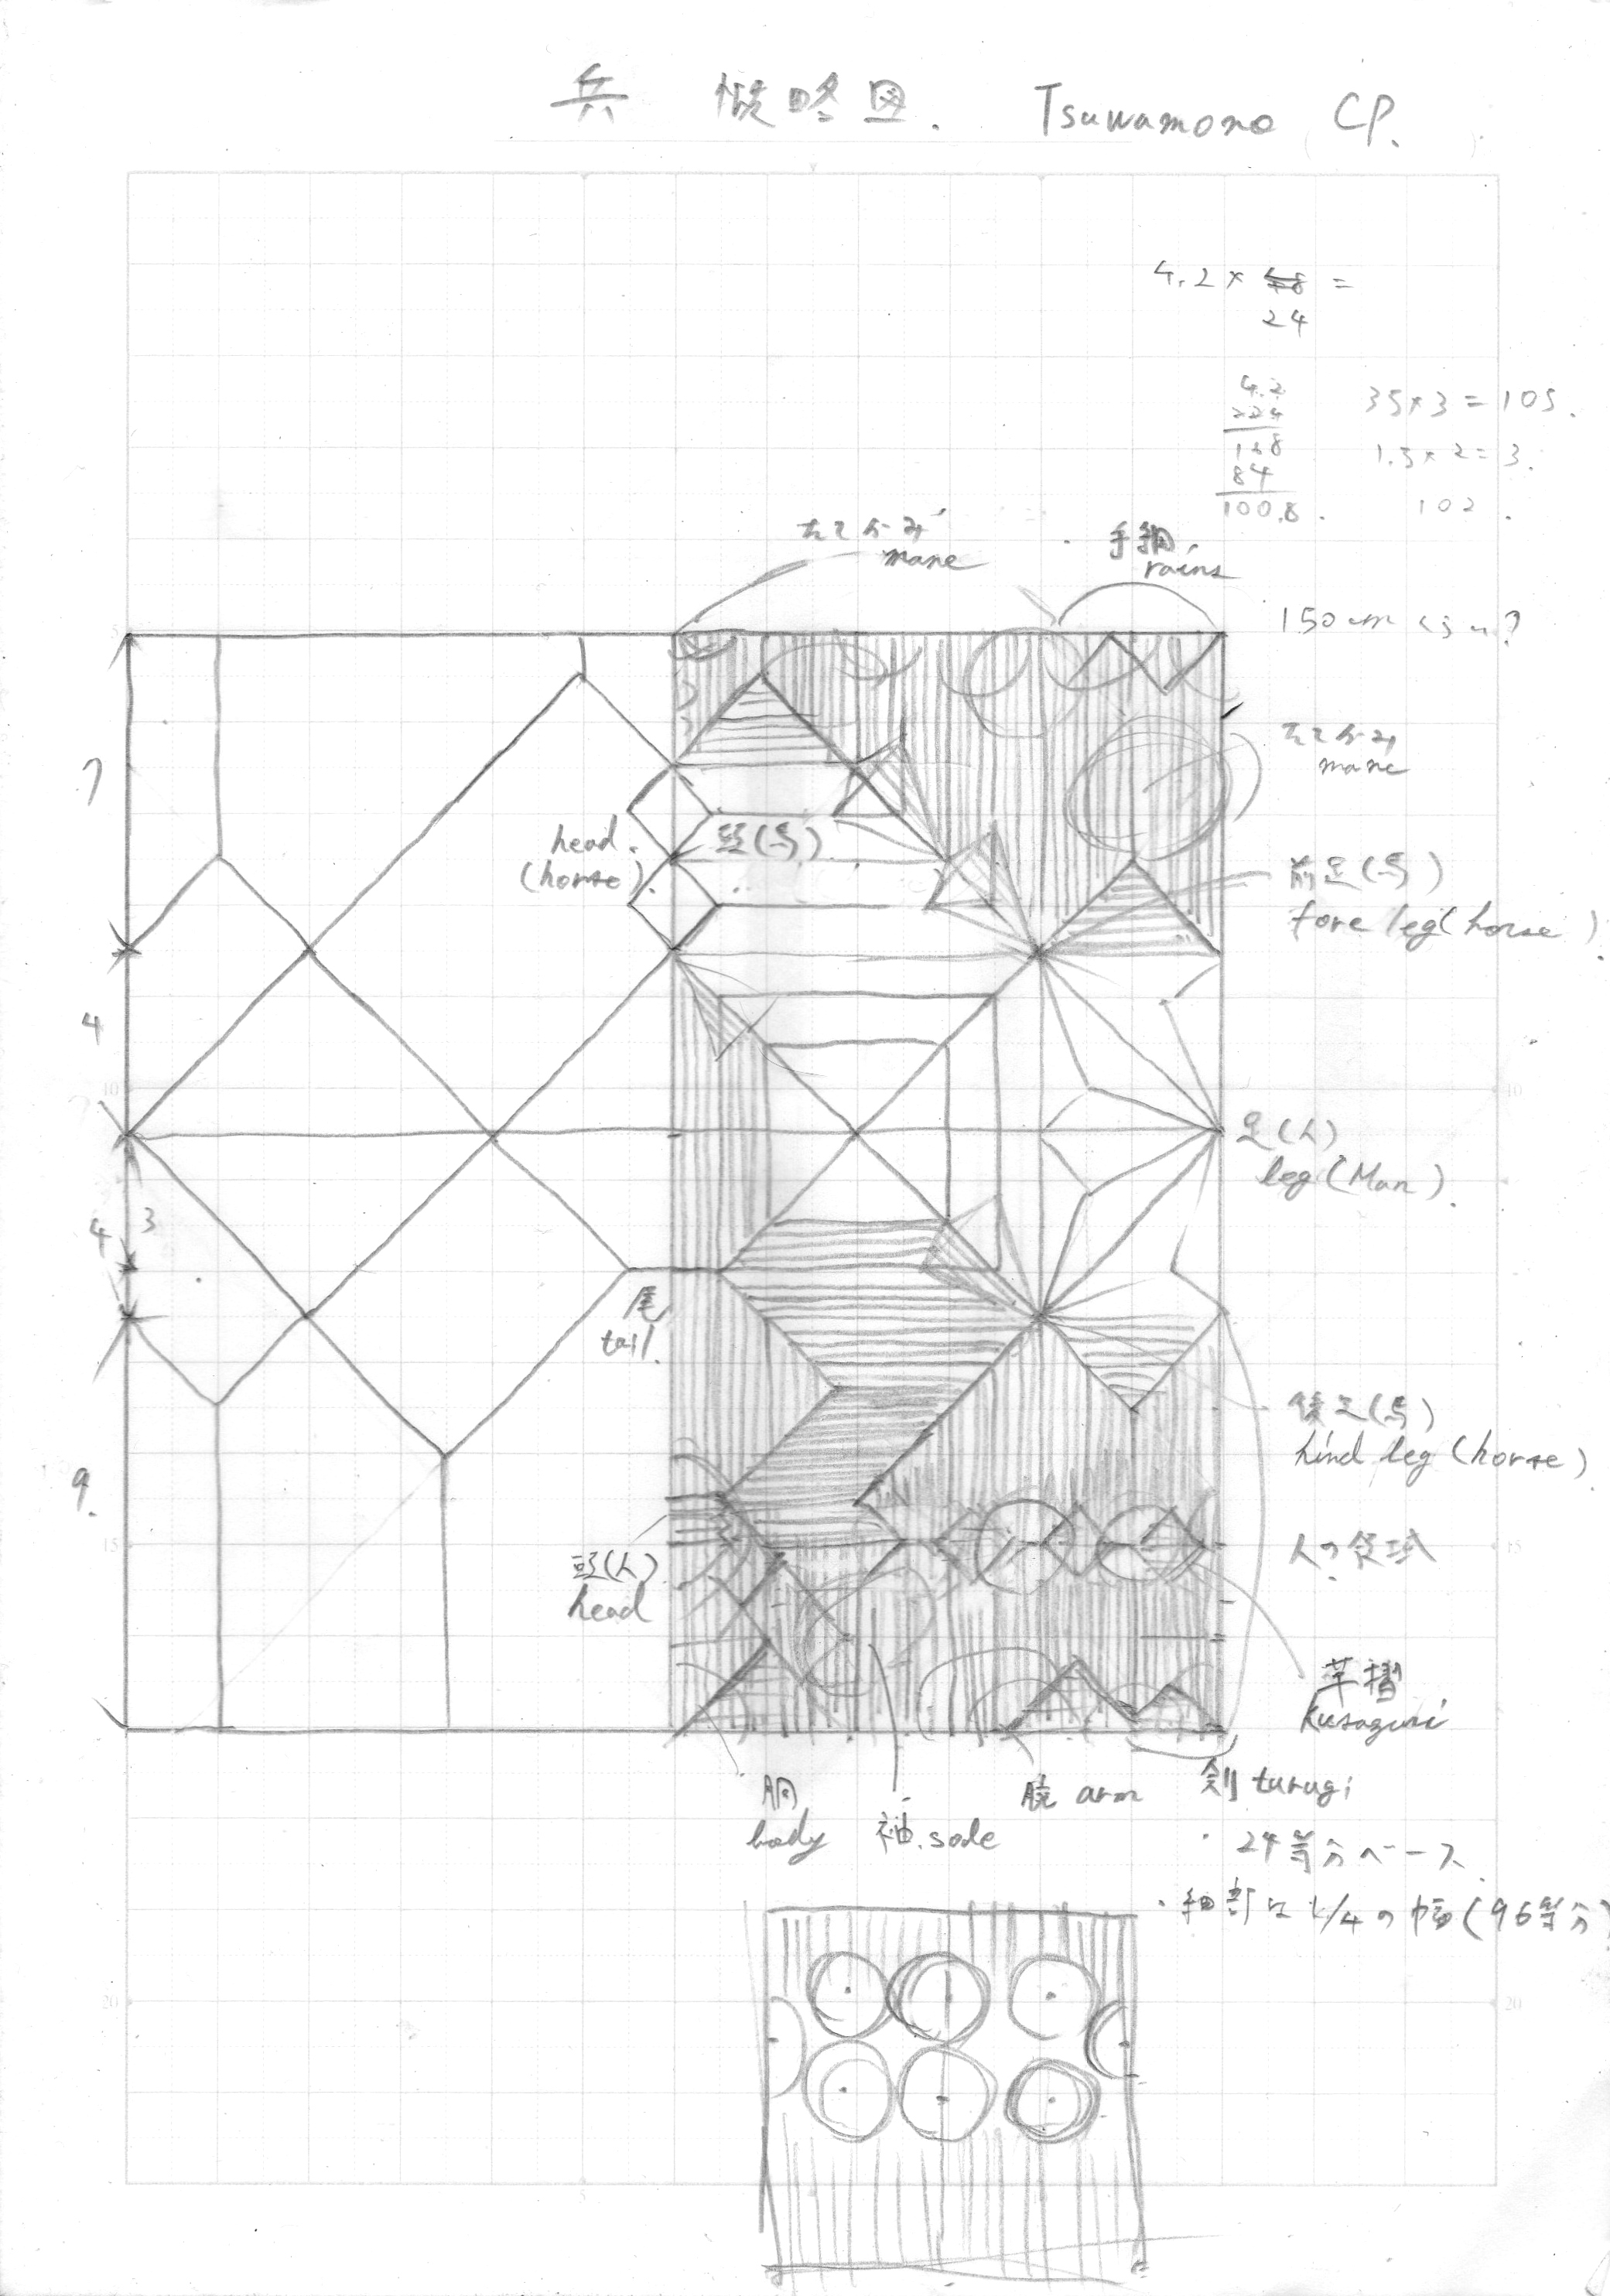 兵 概略図. Tsuwamono CP.
4.2×48 =
24
4.2
35×3=105.
168
1.5×2=3.
84
100.8.
102.
たてがみ
mane
手綱
rains
150cmくらい?
7
たてがみ
mane
head.
(horse).
頭(馬)
前足(馬)
fore leg(horse)
4
足(人)
leg(Man).
4
3
尾
tail.
後足(馬)
hind leg(horse)
9.
頭(人)
head
人の領域
草摺
Kusazuri
胴
body
袖.sode
腕 arm
剣 turugi
・24等分ベース
・細部は1/4の幅(96等分)